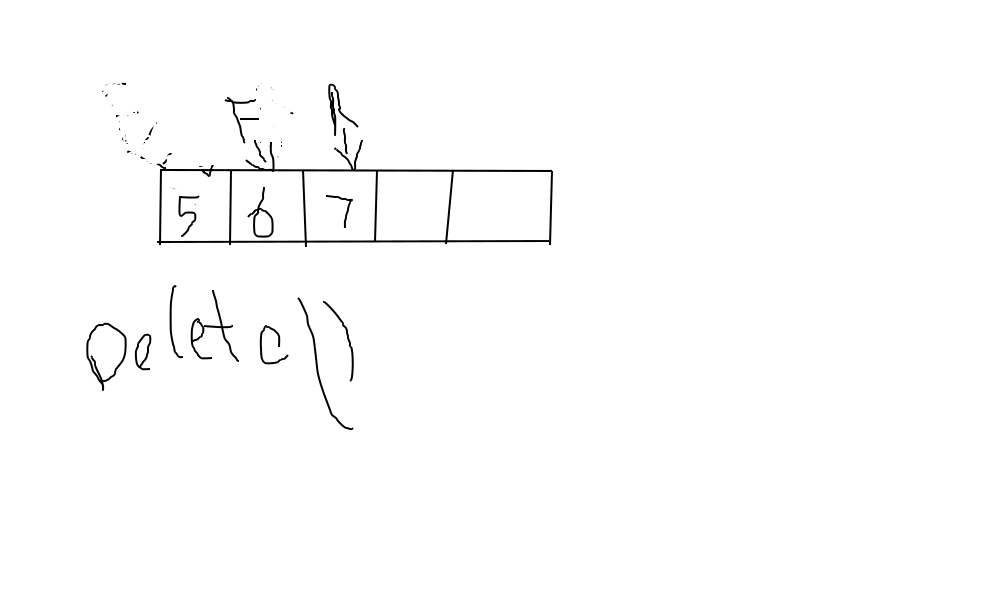 F R
5 6 7
Delete()